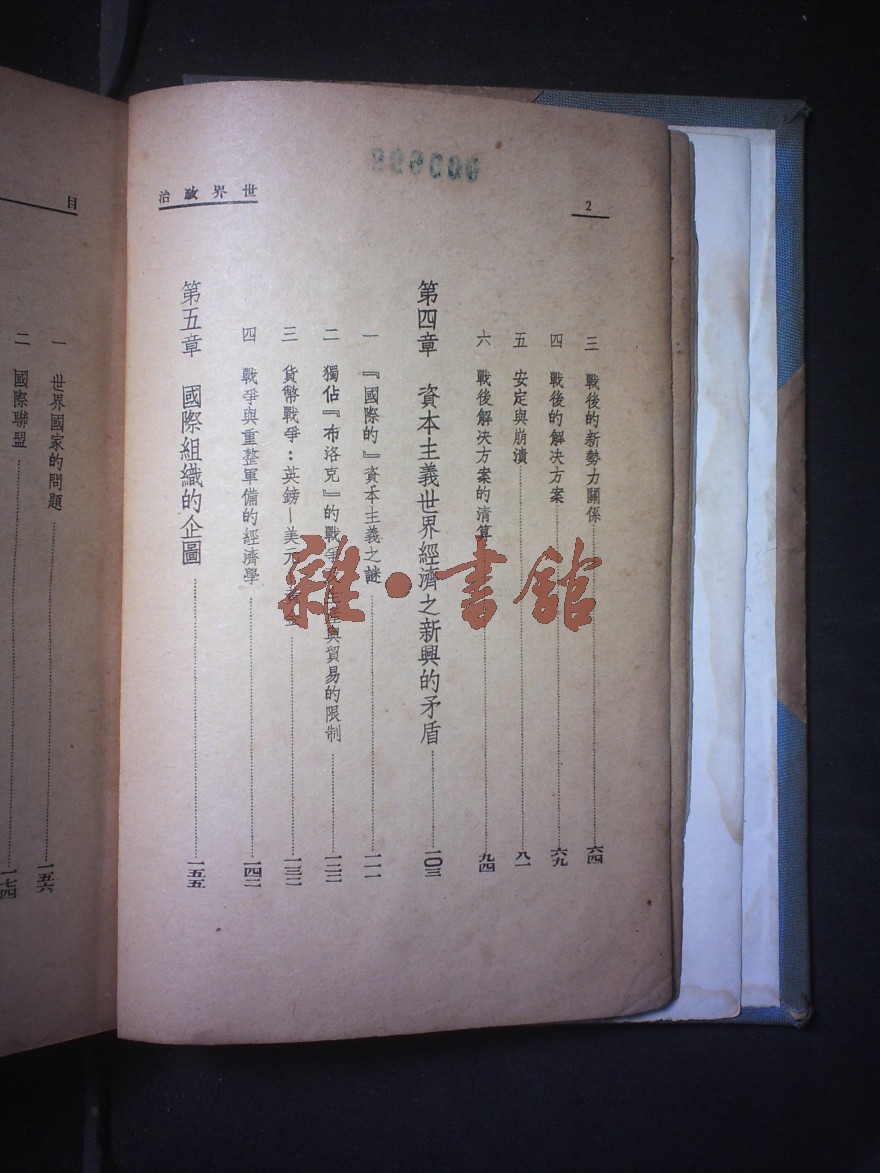 世界政治
2
三　戰後的新勢力關係……六四
四　戰後的解決方案……六九
五　安定與崩潰……八一
六　戰後解決方案的清算……九四
第四章　資本主義世界經濟之新興的矛盾……一〇三
一　『國際的』資本主義之謎……一一一
二　獨佔『布洛克』的戰爭 生產與貿易的限制……一二二
三　貨幣戰爭：英鎊—美元……一三二
四　戰爭與重整軍備的經濟學……一四二
第五章　國際組織的企圖……一五五
目
一　世界國家的問題……一五六
二　國際聯盟……一七四
雜·書館